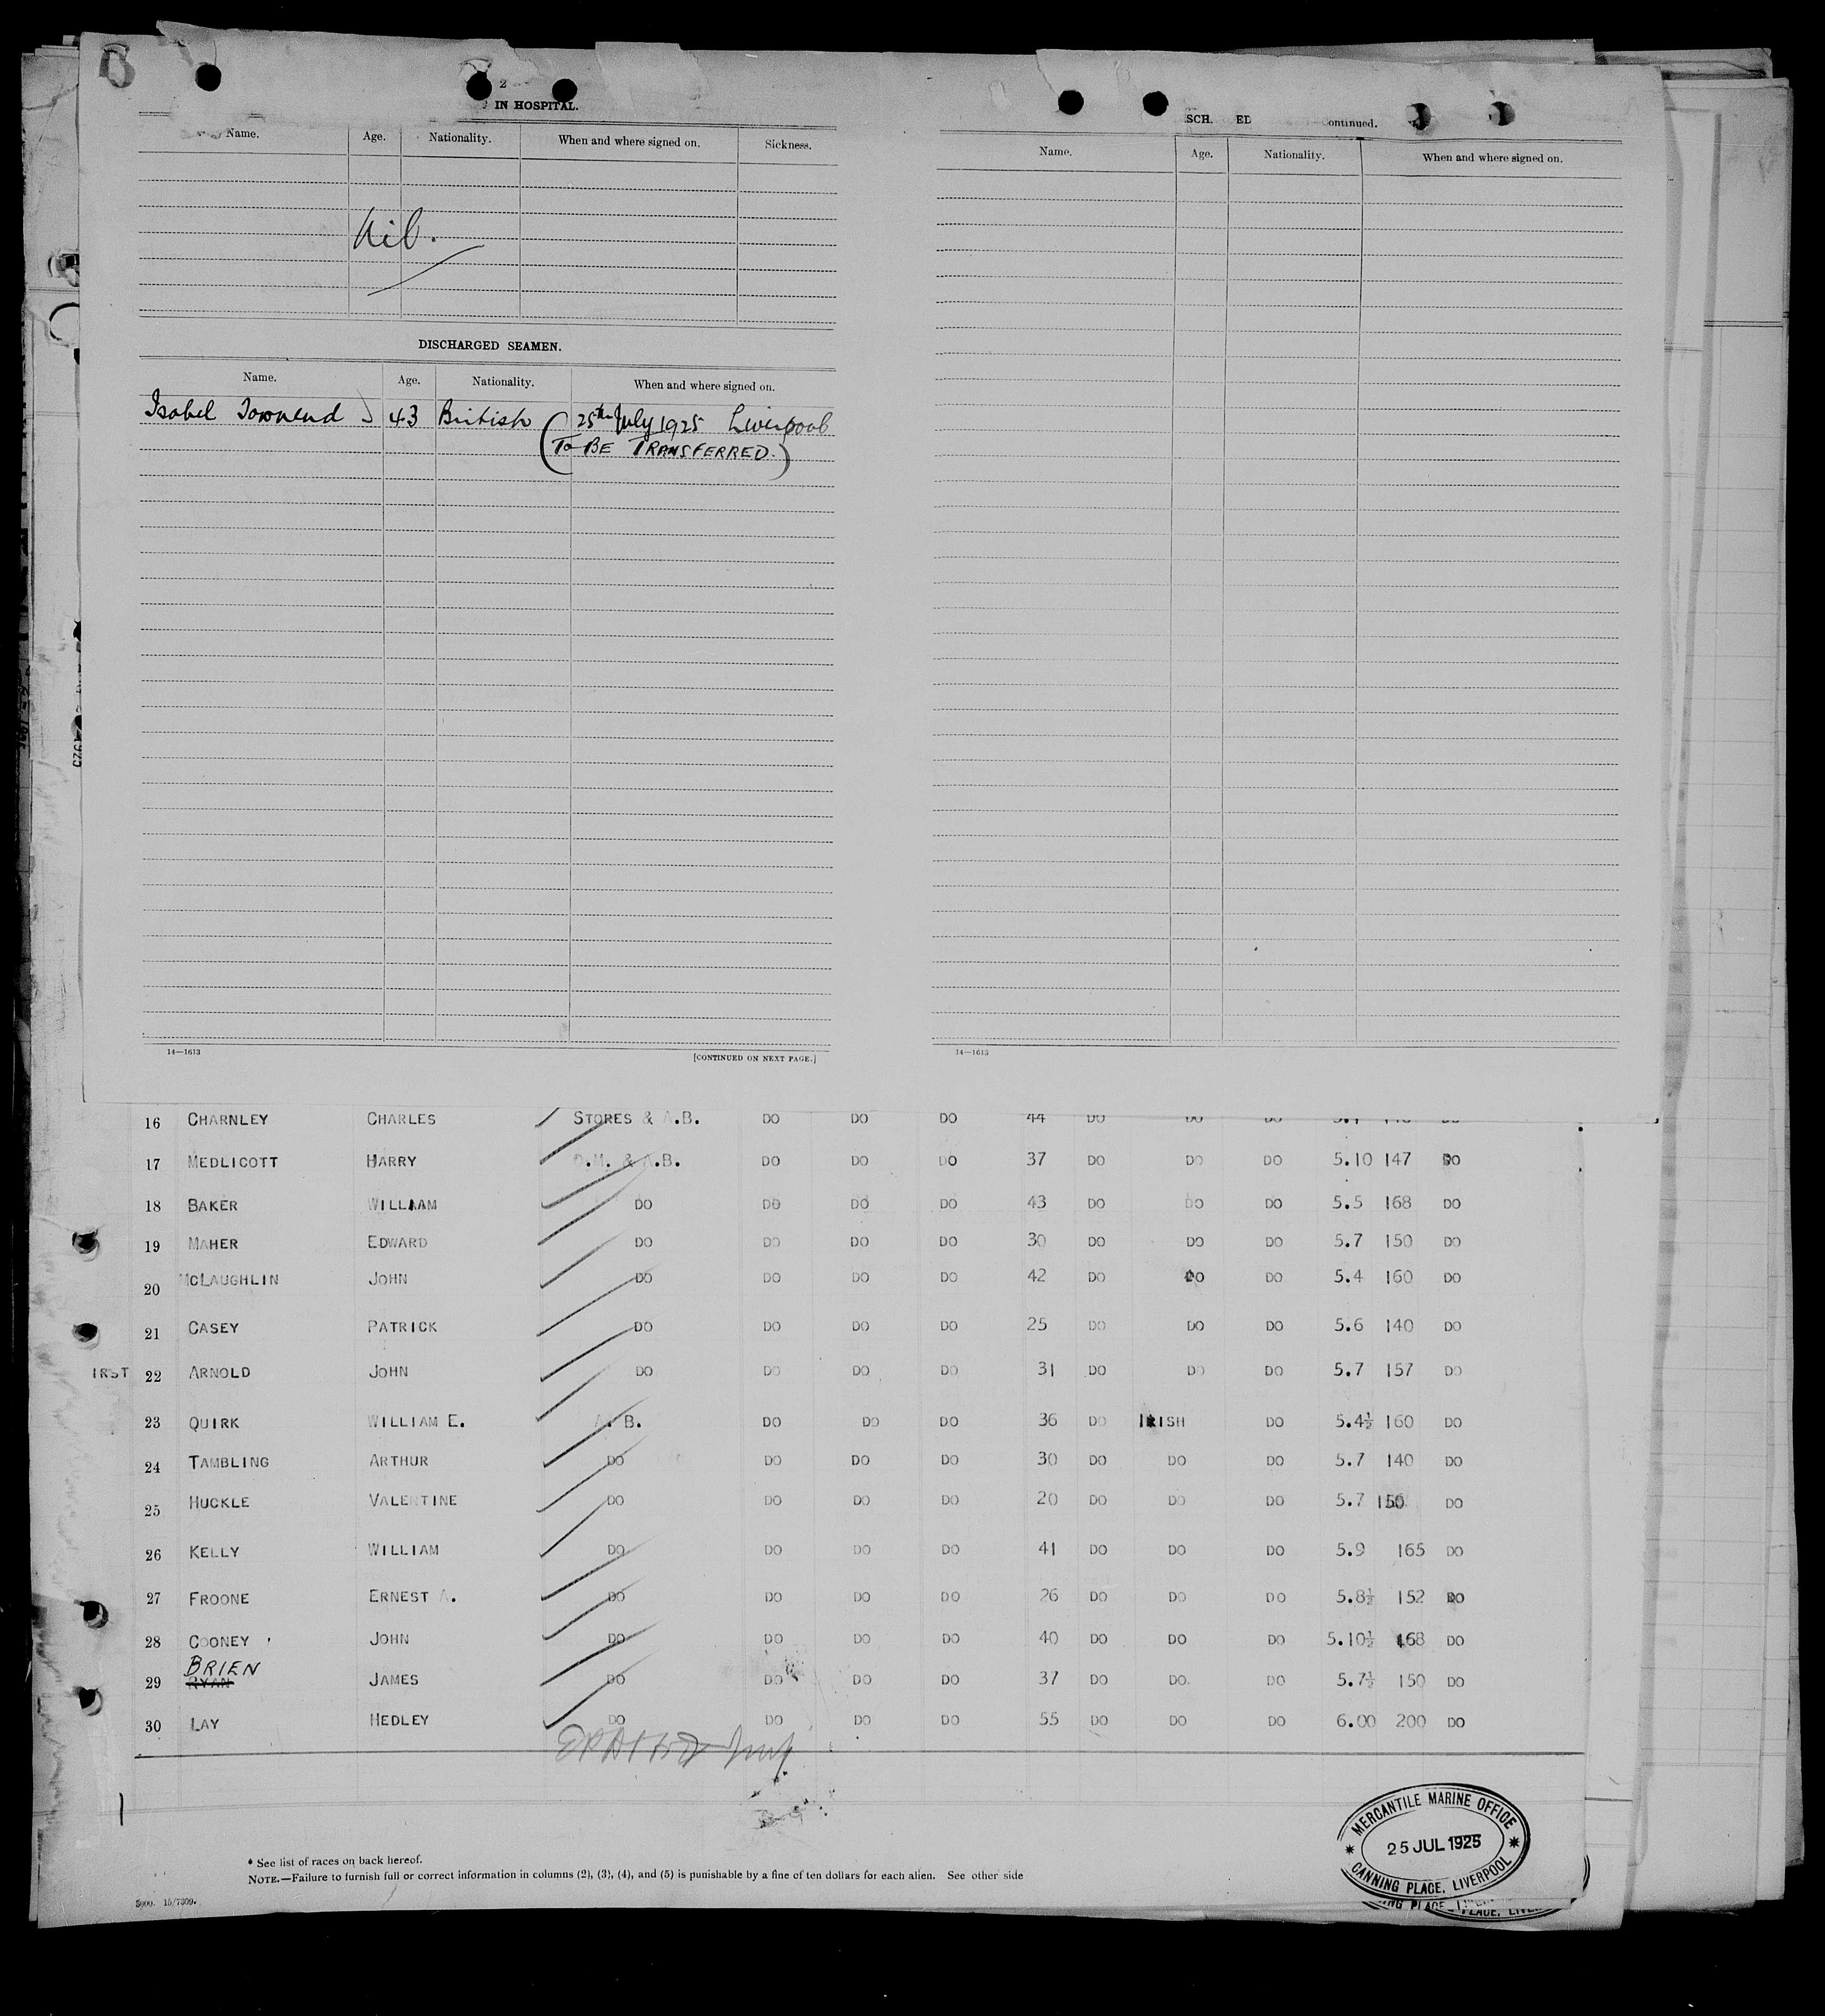 2
IN HOSPITAL.
Name. Age. Nationality. When and where signed on. Sickness.
Nil.
DISCHARGED SEAMEN.
Name. Age. Nationality. When and where signed on.
Isabel Townend 43 British 25th July 1925 Liverpool
(TO BE TRANSFERRED.)
14—1613 [CONTINUED ON NEXT PAGE.]
SCH. ED Continued.
Name. Age. Nationality. When and where signed on.
14—1613
16 CHARNLEY CHARLES STORES & A.B. DO DO DO 44 DO DO DO
17 MEDLICOTT HARRY D.M. & A.B. DO DO DO 37 DO DO DO 5.10 147 DO
18 BAKER WILLIAM DO DO DO DO 43 DO DO DO 5.5 168 DO
19 MAHER EDWARD DO DO DO DO 30 DO DO DO 5.7 150 DO
20 MCLAUGHLIN JOHN DO DO DO DO 42 DO DO DO 5.4 160 DO
21 CASEY PATRICK DO DO DO DO 25 DO DO DO 5.6 140 DO
IRST 22 ARNOLD JOHN DO DO DO DO 31 DO DO DO 5.7 157 DO
23 QUIRK WILLIAM E. A.B. DO DO DO 36 DO IRISH DO 5.4½ 160 DO
24 TAMBLING ARTHUR DO DO DO DO 30 DO DO DO 5.7 140 DO
25 HUCKLE VALENTINE DO DO DO DO 20 DO DO DO 5.7 150 DO
26 KELLY WILLIAM DO DO DO DO 41 DO DO DO 5.9 165 DO
27 FROONE ERNEST A. DO DO DO DO 26 DO DO DO 5.8½ 152 DO
28 COONEY JOHN DO DO DO DO 40 DO DO DO 5.10½ 168 DO
BRIEN
29 RYAN JAMES DO DO DO DO 37 DO DO. DO 5.7½ 150 DO
30 LAY HEDLEY DO DO DO DO 55 DO DO DO 6.00 200 DO
* See list of races on back hereof.
NOTE.—Failure to furnish full or correct information in columns (2), (3), (4), and (5) is punishable by a fine of ten dollars for each alien. See other side
5000. 15/7309.
MERCANTILE MARINE OFFICE
25 JUL 1925
CANNING PLACE, LIVERPOOL